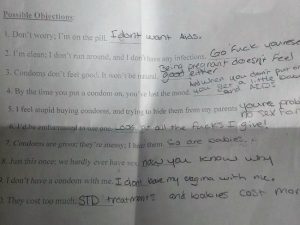 Possible Objections:
1. Don't worry; I'm on the pill. I dont want AIDS.
2. I'm clean; I don't run around, and I don't have any infections. Go fuck yourself
3. Condoms don't feel good. It won't be natural. Being pregnant doesn't feel good either.
4. By the time you put a condom on, you've lost the mood. and when you dont put on you get a little and AIDS
5. I feel stupid buying condoms, and trying to hide them from my parents you're no sex for
6. I'd be embarrassed to use one. LOOK at all the fucks I give!
7. Condoms are gross; they're messy; I hate them. So are babies.
8. Just this once; we hardly ever have sex. now you know why
9. I don't have a condom with me. I dont have my vagina with me.
10. They cost too much. STD treatments and babies cost more